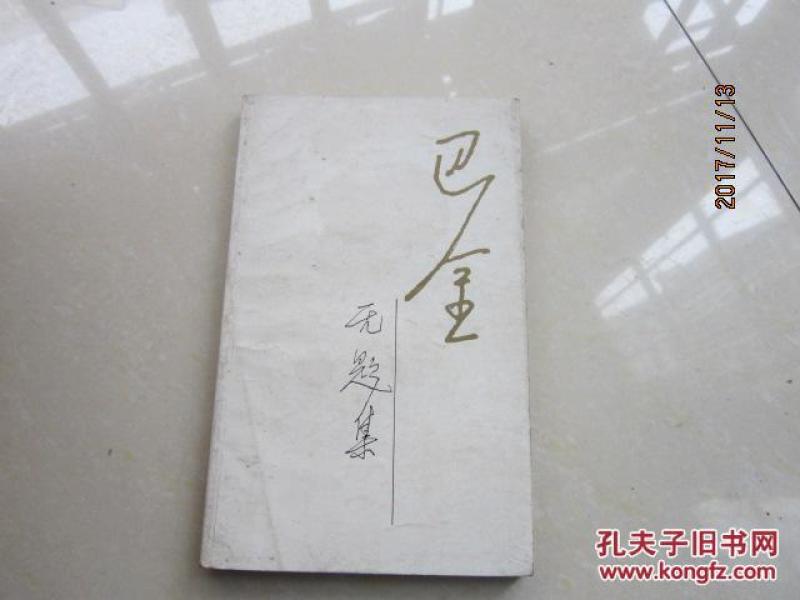 巴金
无题集
2017/11/13
孔夫子旧书网
www.kongfz.com